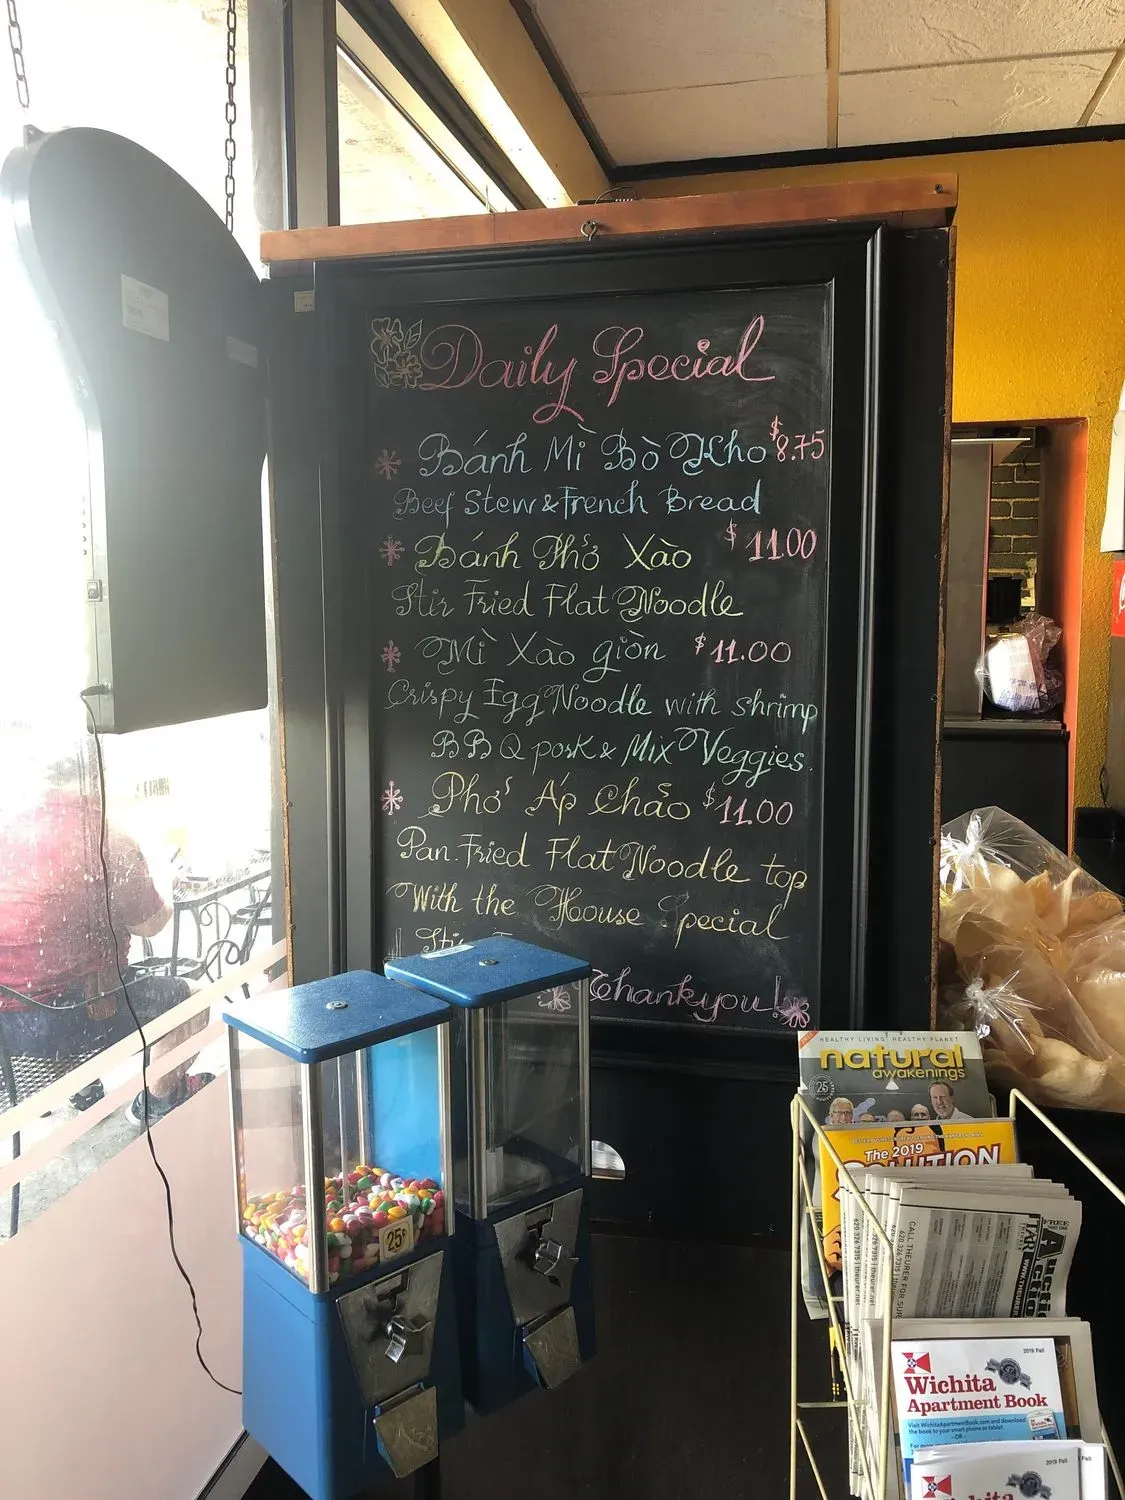 Daily Special
Bánh Mì Bò Kho $8.75
Beef Stew & French Bread
Bánh Phở Xào $11.00
Stir Fried Flat Noodle
Mì Xào giòn $11.00
Crispy Egg Noodle with shrimp
BBQ pork & Mix Veggies.
Phở Áp Chảo $11.00
Pan Fried Flat Noodle top
With the House Special
Thankyou!
25¢
HEALTHY LIVING HEALTHY PLANET
natural
awakenings
25
The 2019
FREE
Auction
CALL THEURER FOR
620.326.7315 | theurer.net
2019 Fall
Wichita
Apartment Book
Visit WichitaApartmentBook.com and download
the book to your smart phone or tablet
-OR-
2019 Fall
Fall
Wichita